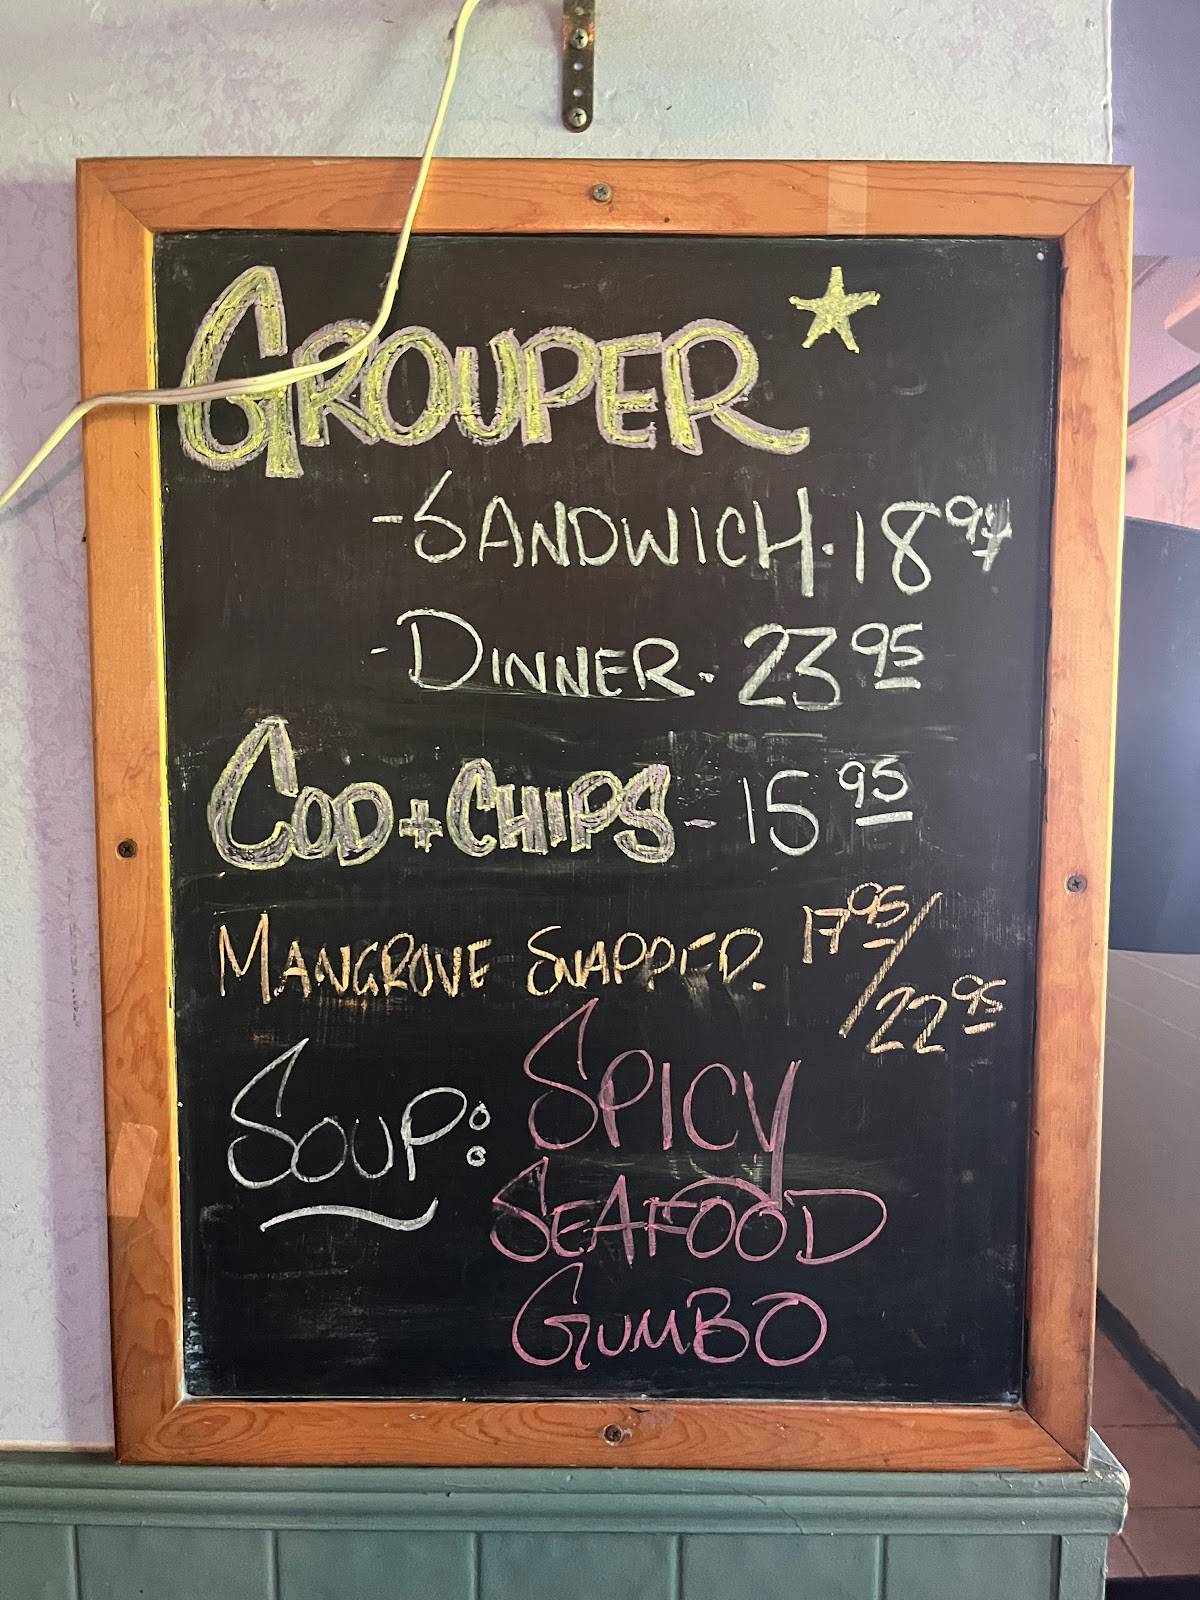 GROUPER
- SANDWICH. 18
- DINNER. 23 95
COD + CHIPS - 15 95
MANGROVE SNAPPER. 17 95 / 22 95
SOUP: SPICY
SEAFOOD
GUMBO